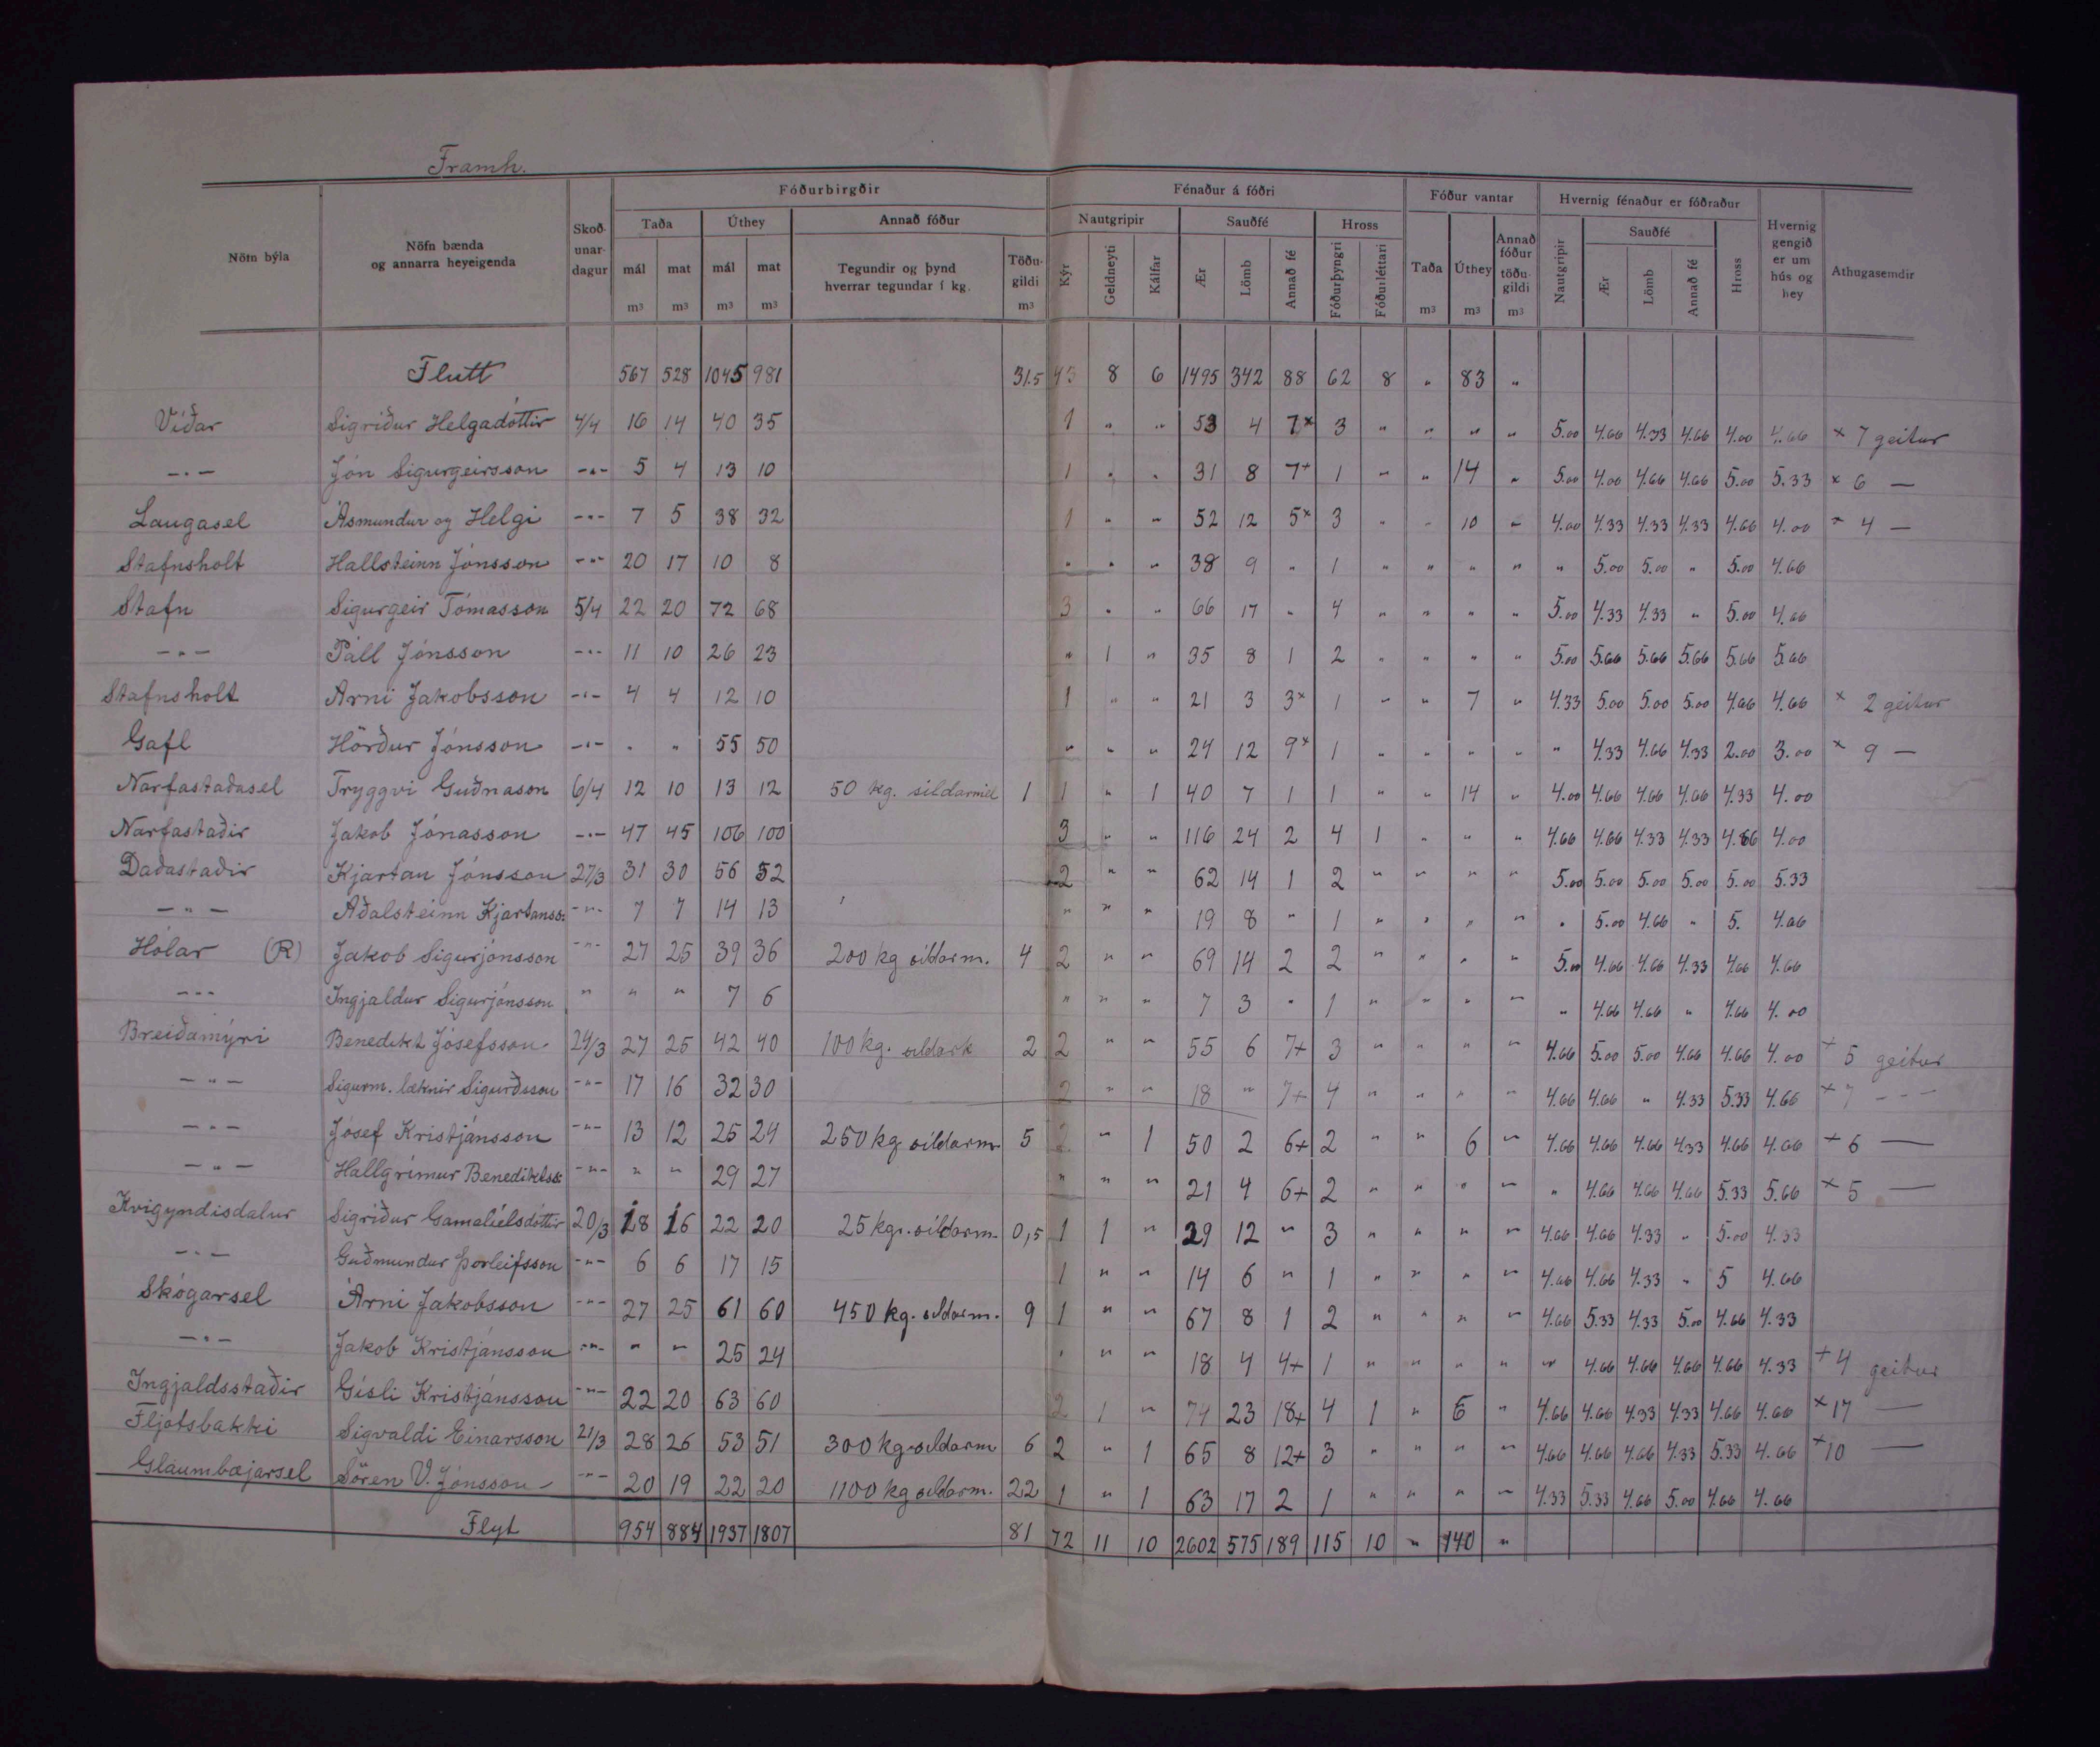 Framh.
Nöfn býla | Nöfn bænda og annarra heyeigenda | Skoðunardagur | Fóðurbirgðir | Fénaður á fóðri | Fóður vantar | Hvernig fénaður er fóðraður | Hvernig gengið er um hús og hey | Athugasemdir
Taða | Úthey | Annað fóður | Nautgripir | Sauðfé | Hross | Taða | Úthey | Annað fóður töðugildi | Nautgripir | Sauðfé | Hross
mál m³ | mat m³ | mál m³ | mat m³ | Tegundir og þynd hverrar tegundar í kg. | Töðugildi m³ | Kýr | Geldneyti | Kálfar | Ær | Lömb | Annað fé | Fóðurþyngri | Fóðurléttari | m³ | m³ | m³ | Ær | Lömb | Annað fé
Flutt 567 528 1045 981 31.5 43 8 6 1495 342 88 62 8 " 83 "
Víðar Sigríður Helgadóttir 4/4 16 14 40 35 1 " " 53 4 7× 3 " " " " 5.00 4.66 4.33 4.66 4.00 4.66 × 7 geitur
–"– Jón Sigurgeirsson –"– 5 4 13 10 1 " " 31 8 7+ 1 " " 14 " 5.00 4.00 4.66 4.66 5.00 5.33 × 6 —
Laugasel Ásmundur og Helgi –"– 7 5 38 32 1 " " 52 12 5× 3 " " 10 " 4.00 4.33 4.33 4.33 4.66 4.00 × 4 —
Stafnsholt Hallsteinn Jónsson –"– 20 17 10 8 " " " 38 9 " 1 " " " " " 5.00 5.00 " 5.00 4.66
Stafn Sigurgeir Tómasson 5/4 22 20 72 68 3 " " 66 17 " 4 " " " " 5.00 4.33 4.33 " 5.00 4.66
–"– Páll Jónsson –"– 11 10 26 23 " 1 " 35 8 1 2 " " " " 5.00 5.66 5.66 5.66 5.66 5.66
Stafnsholt Árni Jakobsson –"– 4 4 12 10 1 " " 21 3 3× 1 " " 7 " 4.33 5.00 5.00 5.00 4.66 4.66 × 2 geitur
Gafl Hörður Jónsson –"– " " 55 50 " " " 24 12 9× 1 " " " " " 4.33 4.66 4.33 2.00 3.00 × 9 —
Narfastaðasel Tryggvi Guðnason 6/4 12 10 13 12 50 kg. síldarmél 1 1 " 1 40 7 1 1 " " 14 " 4.00 4.66 4.66 4.66 4.33 4.00
Narfastaðir Jakob Jónasson –"– 47 45 106 100 3 " " 116 24 2 4 1 " " " 4.66 4.66 4.33 4.33 4.66 4.00
Daðastaðir Kjartan Jónsson 27/3 31 30 56 52 2 " " 62 14 1 2 " " " " 5.00 5.00 5.00 5.00 5.00 5.33
–"– Aðalsteinn Kjartanss: –"– 7 7 14 13 " " " 19 8 " 1 " " " " " 5.00 4.66 " 5. 4.66
Hólar (R) Jakob Sigurjónsson –"– 27 25 39 36 200 kg síldarm. 4 2 " " 69 14 2 2 " " " " 5.00 4.66 4.66 4.33 4.66 4.66
–"– Ingjaldur Sigurjónsson " " " 7 6 " " " 7 3 " 1 " " " " " 4.66 4.66 " 4.66 4.00
Breiðamýri Benedikt Jósefsson 24/3 27 25 42 40 100 kg. síldark 2 2 " " 55 6 7+ 3 " " " " 4.66 5.00 5.00 4.66 4.66 4.00 + 5 geitur
–"– Sigurm. læknir Sigurðsson –"– 17 16 32 30 2 " " 18 " 7+ 4 " " " " 4.66 4.66 " 4.33 5.33 4.66 × 7 – – –
–"– Jósef Kristjánsson –"– 13 12 25 24 250 kg síldarm 5 2 " 1 50 2 6+ 2 " " 6 " 4.66 4.66 4.66 4.33 4.66 4.66 + 6 —
–"– Hallgrímur Benediktss: –"– " " 29 27 " " " 21 4 6+ 2 " " " " " 4.66 4.66 4.66 5.33 5.66 × 5 —
Kvígyndisdalur Sigríður Gamalíelsdóttir 20/3 18 16 22 20 25 kgr. síldarm. 0,5 1 1 " 29 12 " 3 " " " " 4.66 4.66 4.33 " 5.00 4.33
–"– Guðmundur Þorleifsson –"– 6 6 17 15 1 " " 14 6 " 1 " " " " 4.66 4.66 4.33 " 5 4.66
Skógarsel Árni Jakobsson –"– 27 25 61 60 450 kg. síldarm. 9 1 " " 67 8 1 2 " " " " 4.66 5.33 4.33 5.00 4.66 4.33
–"– Jakob Kristjánsson –"– " " 25 24 " " " 18 4 4+ 1 " " " " " 4.66 4.66 4.66 4.66 4.33 + 4 geitur
Ingjaldsstaðir Gísli Kristjánsson –"– 22 20 63 60 2 1 " 74 23 18+ 4 1 " 6 " 4.66 4.66 4.33 4.33 4.66 4.66 × 17 —
Fljótsbakki Sigvaldi Einarsson 21/3 28 26 53 51 300 kg síldarm 6 2 " 1 65 8 12+ 3 " " " " 4.66 4.66 4.66 4.33 5.33 4.66 × 10 —
Glaumbæjarsel Sören V. Jónsson –"– 20 19 22 20 1100 kg síldarm. 22 1 " 1 63 17 2 1 " " " " 4.33 5.33 4.66 5.00 4.66 4.66
Flyt 954 884 1937 1807 81 72 11 10 2602 575 189 115 10 " 140 "